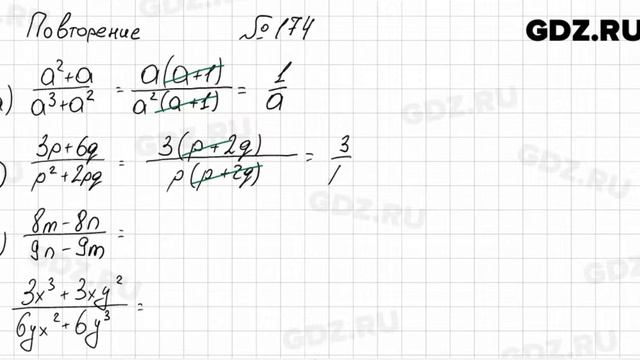 GDZ.RU
Повторение № 174
) (a²+a)/(a³+a²) = a(a+1)/a²(a+1) = 1/a
) (3p+6q)/(p²+2pq) = 3(p+2q)/p(p+2q) = 3/
) (8m-8n)/(9n-9m) =
(3x³+3xy²)/(6yx²+6y³) =